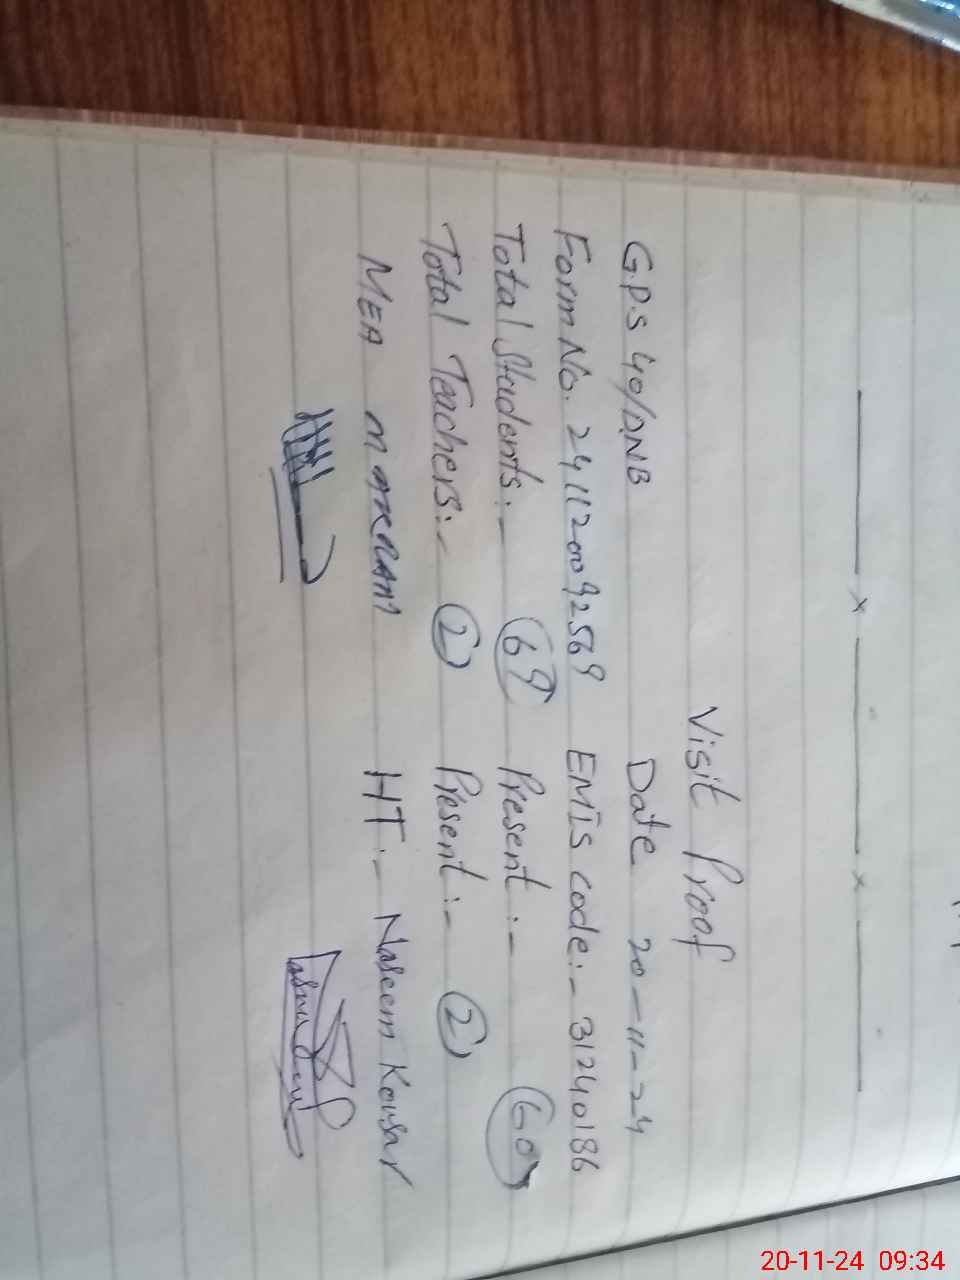 Visit Proof
G.P.S 40/DNB Date 20-11-24
Form No. 241120092569 EMIS code:- 31240186
Total Students:- 69 Present:- 60
Total Teachers:- 2 Present:- 2
MEA HT:- Naseem Kousar
20-11-24 09:34